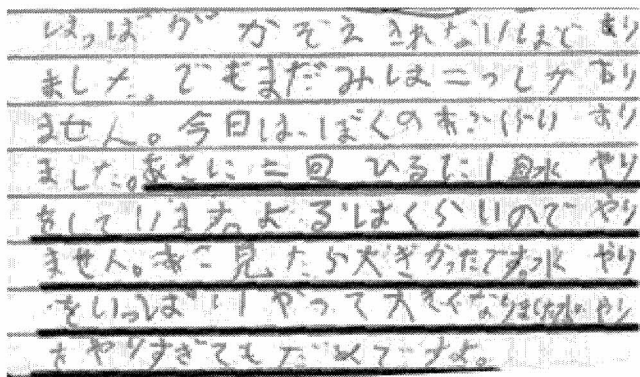 はっぱが かぞえきれないほどあり
ました。でもまだみは二つしかあり
ません。今日は、ぼくの
ました。あさに二回 ひるに1回水やり
をしています。よるはくらいのでやり
ません。 見たら大きかったです。水やり
をいっぱいやって大きくなりました。水やり
をやりすぎてもだめですよ。